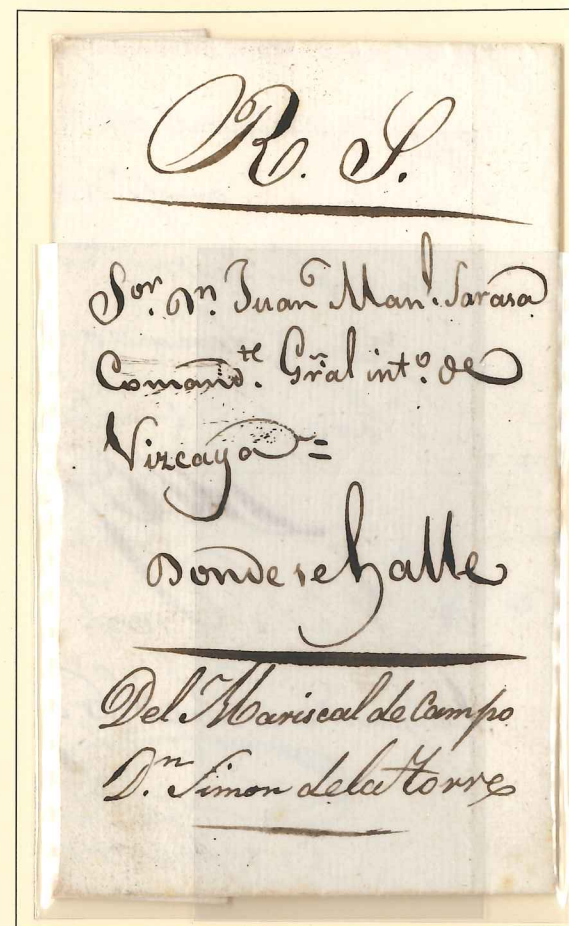 R. S.
Sor. Dn. Juan Manl. Sarasa
Comandte. Gral int.o de
Vizcaya =
Donde se halle
Del Mariscal de Campo
D.n Simon de la Torre